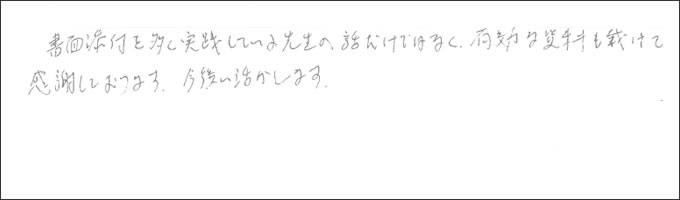 書面添付を多く実践している先生の、話だけではなく、有効な資料も戴けて
感謝しております。今後に活かします。